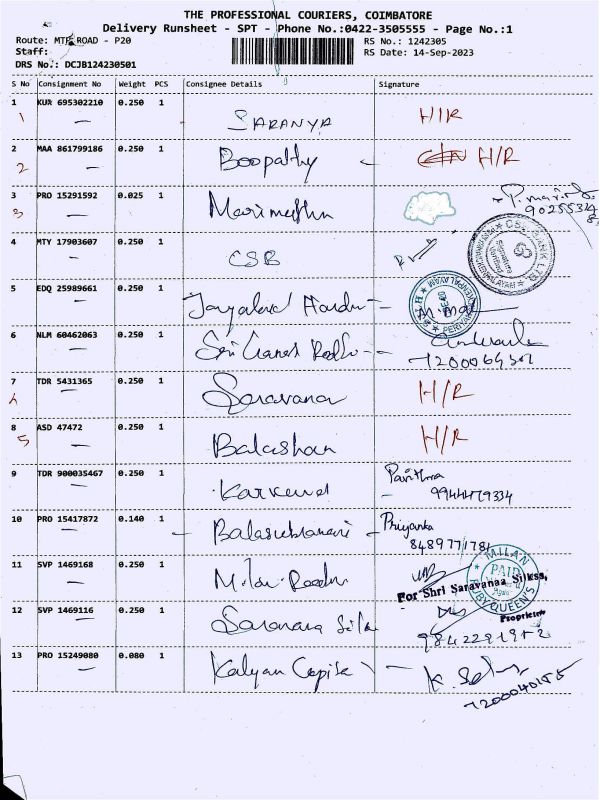 THE PROFESSIONAL COURIERS, COIMBATORE
Delivery Runsheet - SPT - Phone No.:0422-3505555 - Page No.:1
Route: MTP ROAD - P20 RS No.: 1242305
Staff: RS Date: 14-Sep-2023
DRS No.: DCJB124230501
S No Consignment No Weight PCS Consignee Details Signature
1 KUR 695302210 0.250 1 SARANYA H/R
1
2 MAA 861799186 0.250 1 Boopathy H/R
2
3 PRO 15291592 0.025 1 Marimuthu
3
4 MTY 17903607 0.250 1 CSB
5 EDQ 25989661 0.250 1
6 NLM 60462063 0.250 1 Sri Ganesh
7 TDR 5431365 0.250 1 Saravana H/R
4
8 ASD 47472 0.250 1 H/R
5
9 TDR 900035467 0.250 1 Pavithra
9944479334
10 PRO 15417872 0.140 1 Balasubramani Priyanka
8489771784
11 SVP 1469168 0.250 1 MILAN
PAID
RUBY QUEEN'S
For Shri Saravanaa Silkss,
12 SVP 1469116 0.250 1 Saravana Proprietor
13 PRO 15249080 0.080 1 Kalyan